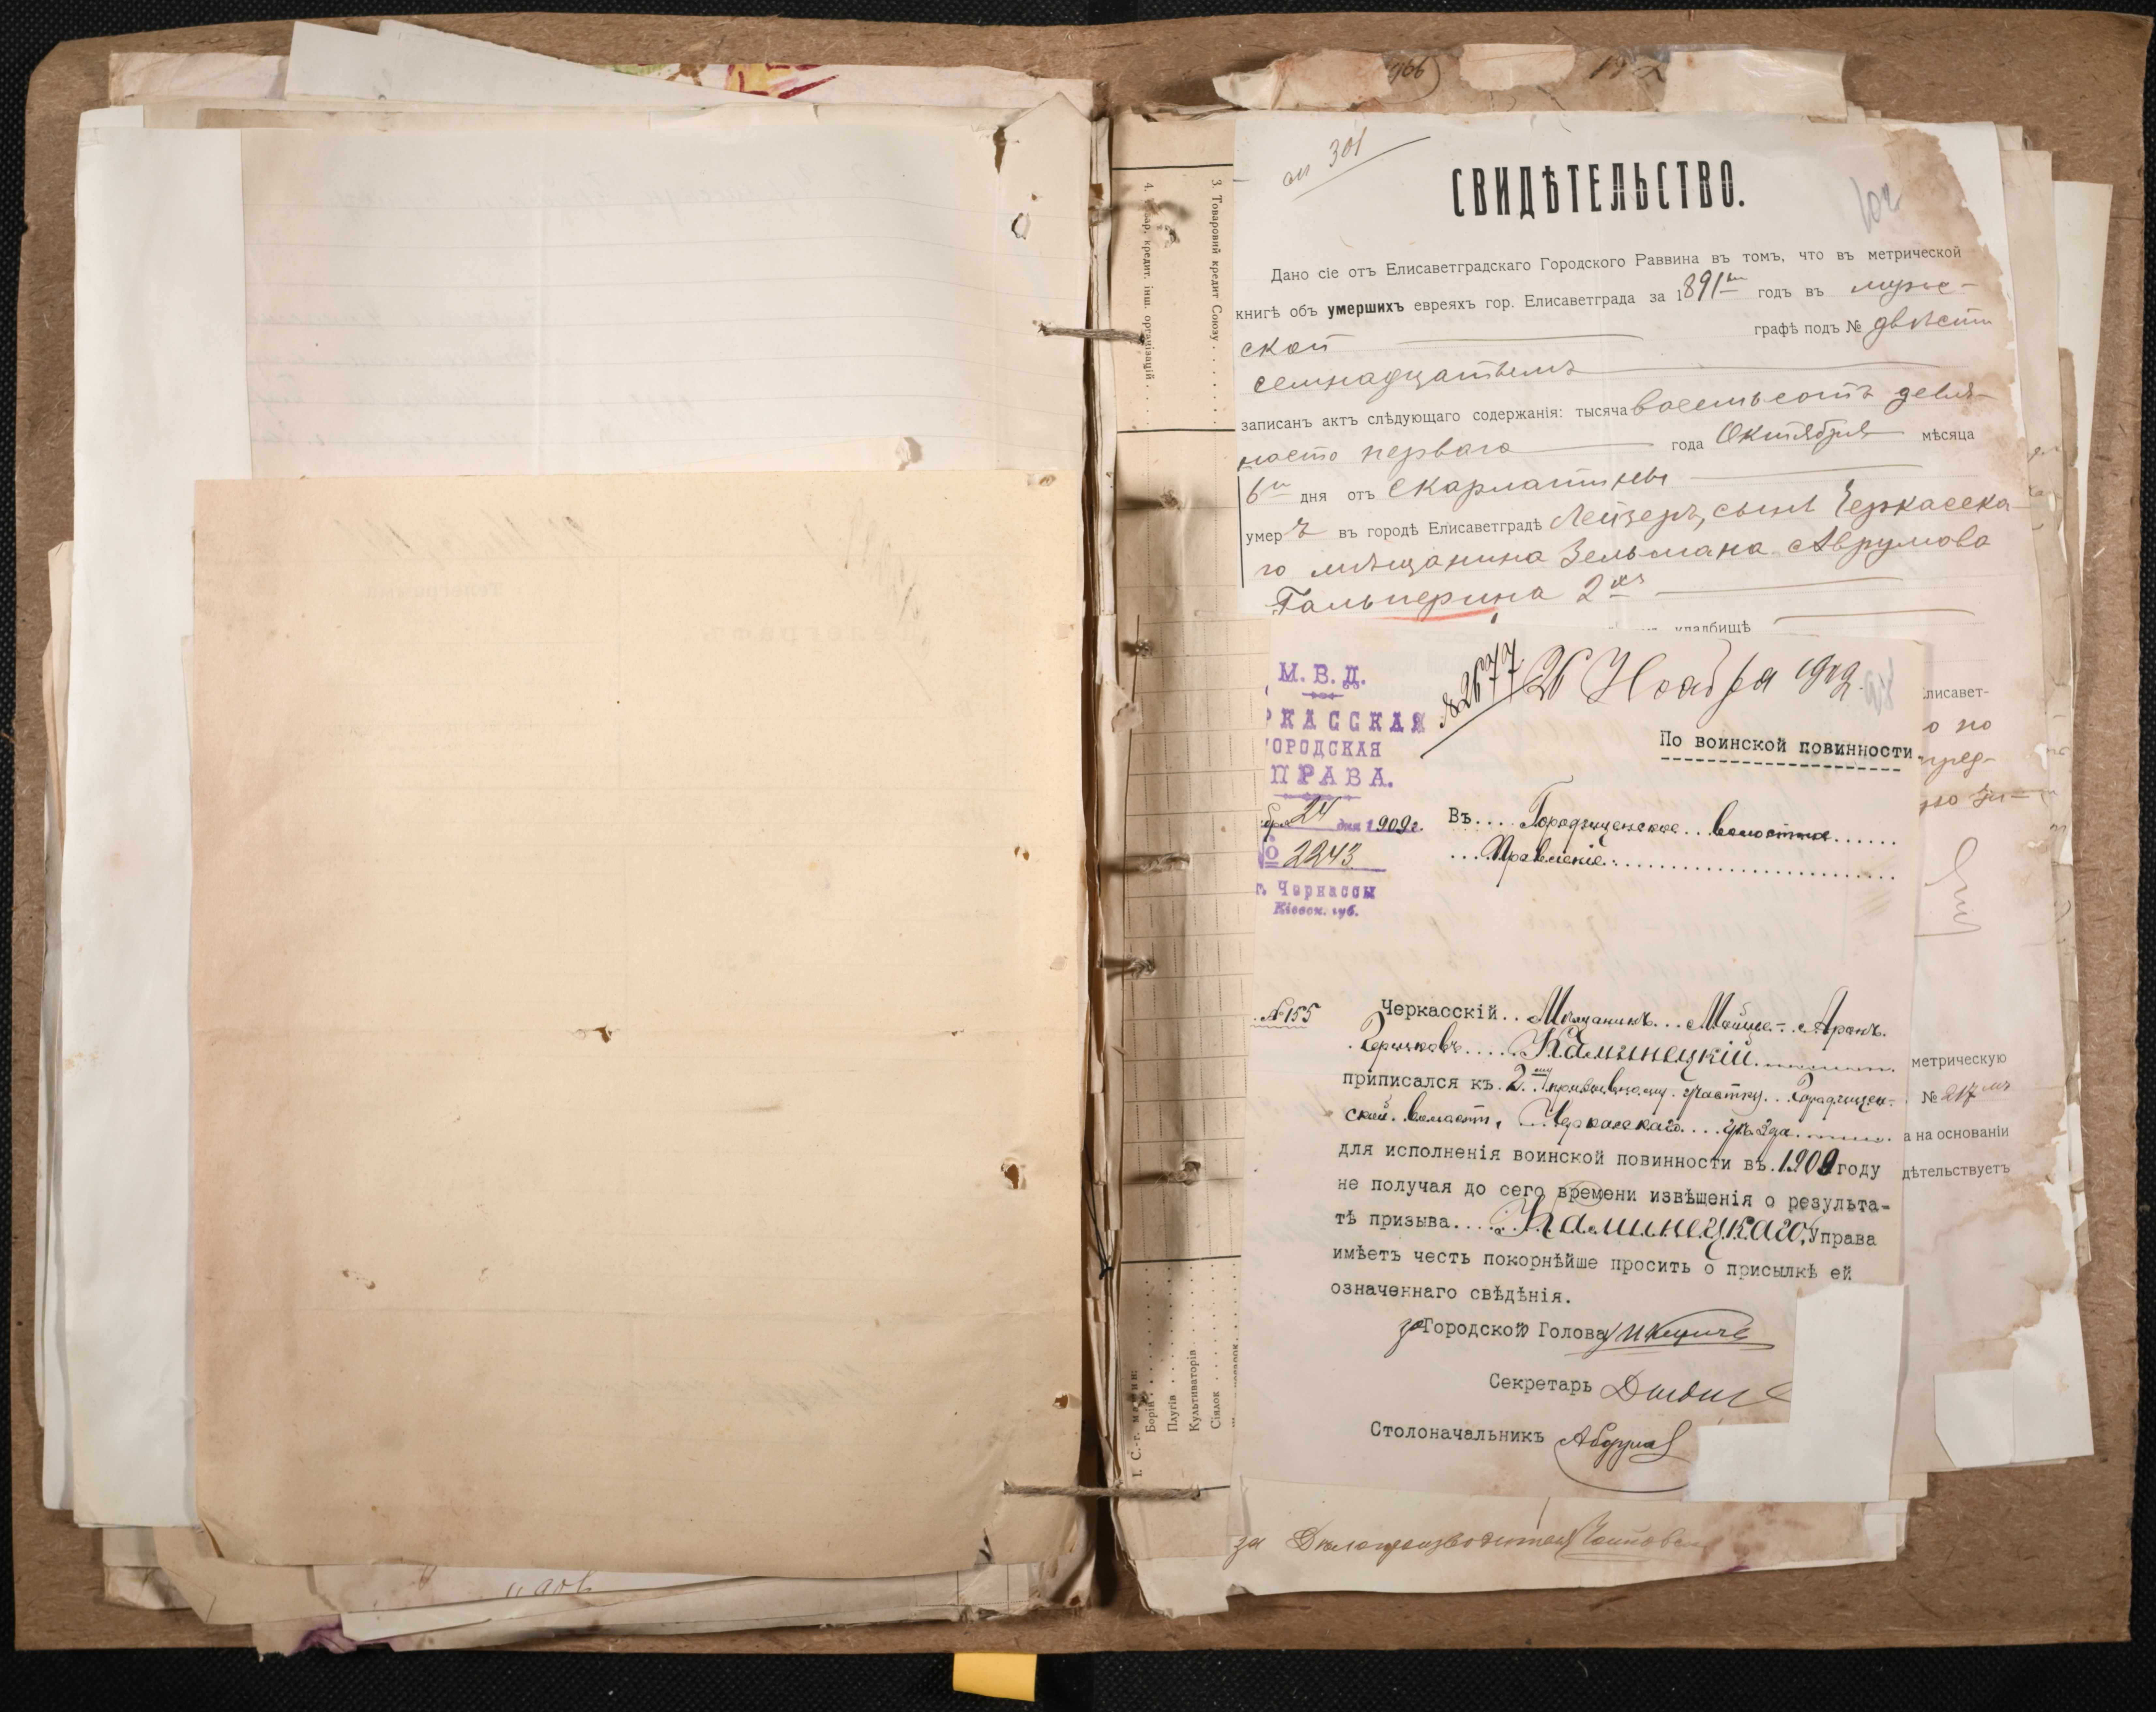 3. Товаровий кредит Союзу
4. Товар. кредит. інш. організацій
301
102
СВИДѢТЕЛЬСТВО.
Дано сіе отъ Елисаветградскаго Городского Раввина въ томъ, что въ метрической
книгѣ объ умершихъ евреяхъ гор. Елисаветграда за 1891 годъ въ мужс-
ской графѣ подъ № двѣсти
семнадцатымъ
записанъ актъ слѣдующаго содержанія: тысяча восемьсотъ девя-
носто перваго года Октября мѣсяца
6го дня отъ скарлатины
умеръ въ городѣ Елисаветградѣ Лейзеръ, сынъ Черкасска-
го мѣщанина Зельмана Аврумова
Гальперина 2
кладбищѣ
Елисавет-
о по
пред-
метрическую
№ 217мъ
а на основаніи
дѣтельствуетъ
М. В. Д.
РКАССКАЯ
ОРОДСКАЯ
ПРАВА.
24 дня 1909г.
2243
г. Черкассы
Кіевск. губ.
№2677 26 Ноября 1909
По воинской повинности.
Въ.... Городищенское.. волостное......
...Правленіе...
№155
Черкасскій.. Мѣщанинъ... Мойше-Аронъ.
Гершковъ..... Каминецкій
приписался къ. 2му призывному. участку.. Городищен-
ской. волости, ..Черкасскаго.... уѣзда
для исполненія воинской повинности въ.1909году
не получая до сего времени извѣщенія о результа-
тѣ призыва.... Каминецкаго, Управа
имѣетъ честь покорнѣйше просить о присылкѣ ей
означеннаго свѣдѣнія.
за Городской Голова
Секретарь
Столоначальникъ
за Дѣлопроизводителя
I. С.-г. машин:
Борін
Плугів
Культиваторів
Сівлок